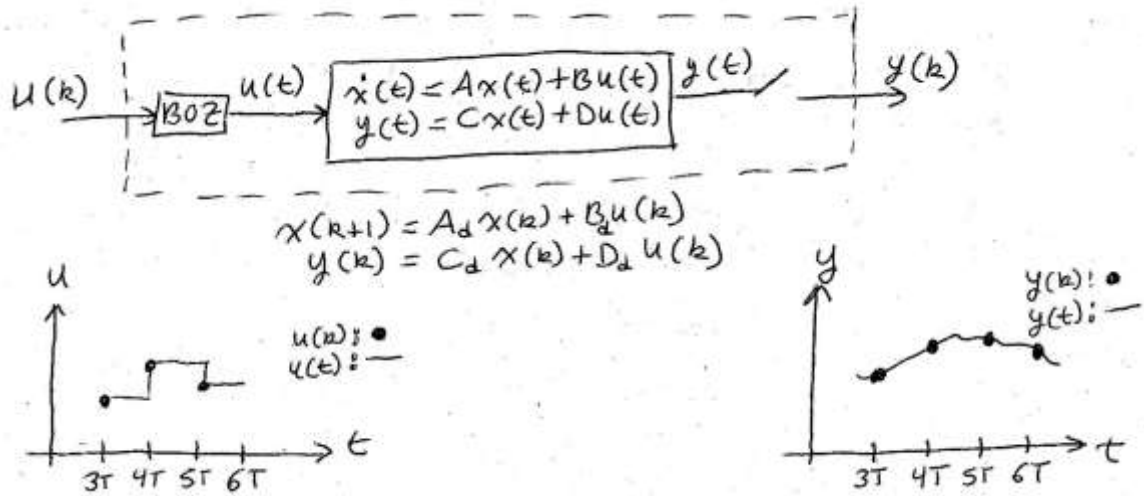 u(k)
BOZ
u(t)
ẋ(t) = Ax(t) + Bu(t)
y(t) = Cx(t) + Du(t)
y(t)
y(k)
x(k+1) = A_d x(k) + B_d u(k)
y(k) = C_d x(k) + D_d u(k)
u
u(k): •
u(t): —
3T 4T 5T 6T
t
y
y(k): •
y(t): —
3T 4T 5T 6T
t